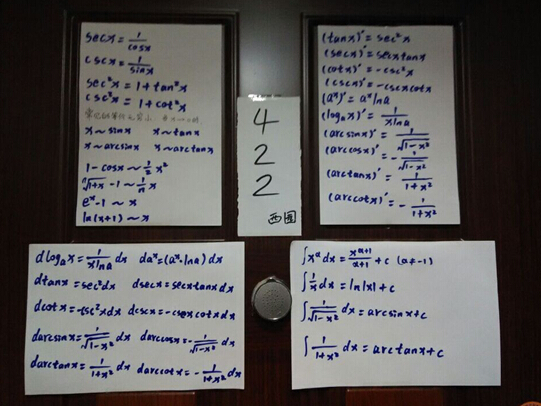 secx = 1/cosx
cscx = 1/sinx
sec²x = 1+tan²x
csc²x = 1+cot²x
x~sinx x~tanx
x~arcsinx x~arctanx
1-cosx ~ 1/2 x²
ⁿ√1+x -1 ~ 1/n x
eˣ-1 ~ x
ln(x+1) ~ x
4
2
2
西园
(tanx)′ = sec²x
(secx)′ = secxtanx
(cotx)′ = -csc²x
(cscx)′ = -cscxcotx
(aˣ)′ = aˣlna
(logₐx)′ = 1/xlna
(arcsinx)′ = 1/√1-x²
(arccosx)′ = -1/√1-x²
(arctanx)′ = 1/1+x²
(arccotx)′ = -1/1+x²
dlogₐx = 1/xlna dx daˣ = (aˣ·lna)dx
dtanx = sec²dx dsecx = secx·tanx dx
dcotx = -csc²xdx dcscx = -cscxcotxdx
darcsinx = 1/√1-x² dx darccosx = -1/√1-x² dx
darctanx = 1/1+x² dx darccotx = -1/1+x² dx
∫xᵅdx = xᵅ⁺¹/x+1 +c (a≠-1)
∫1/x dx = ln|x|+c
∫1/√1-x² dx = arcsinx+c
∫1/1+x² dx = arctanx+c